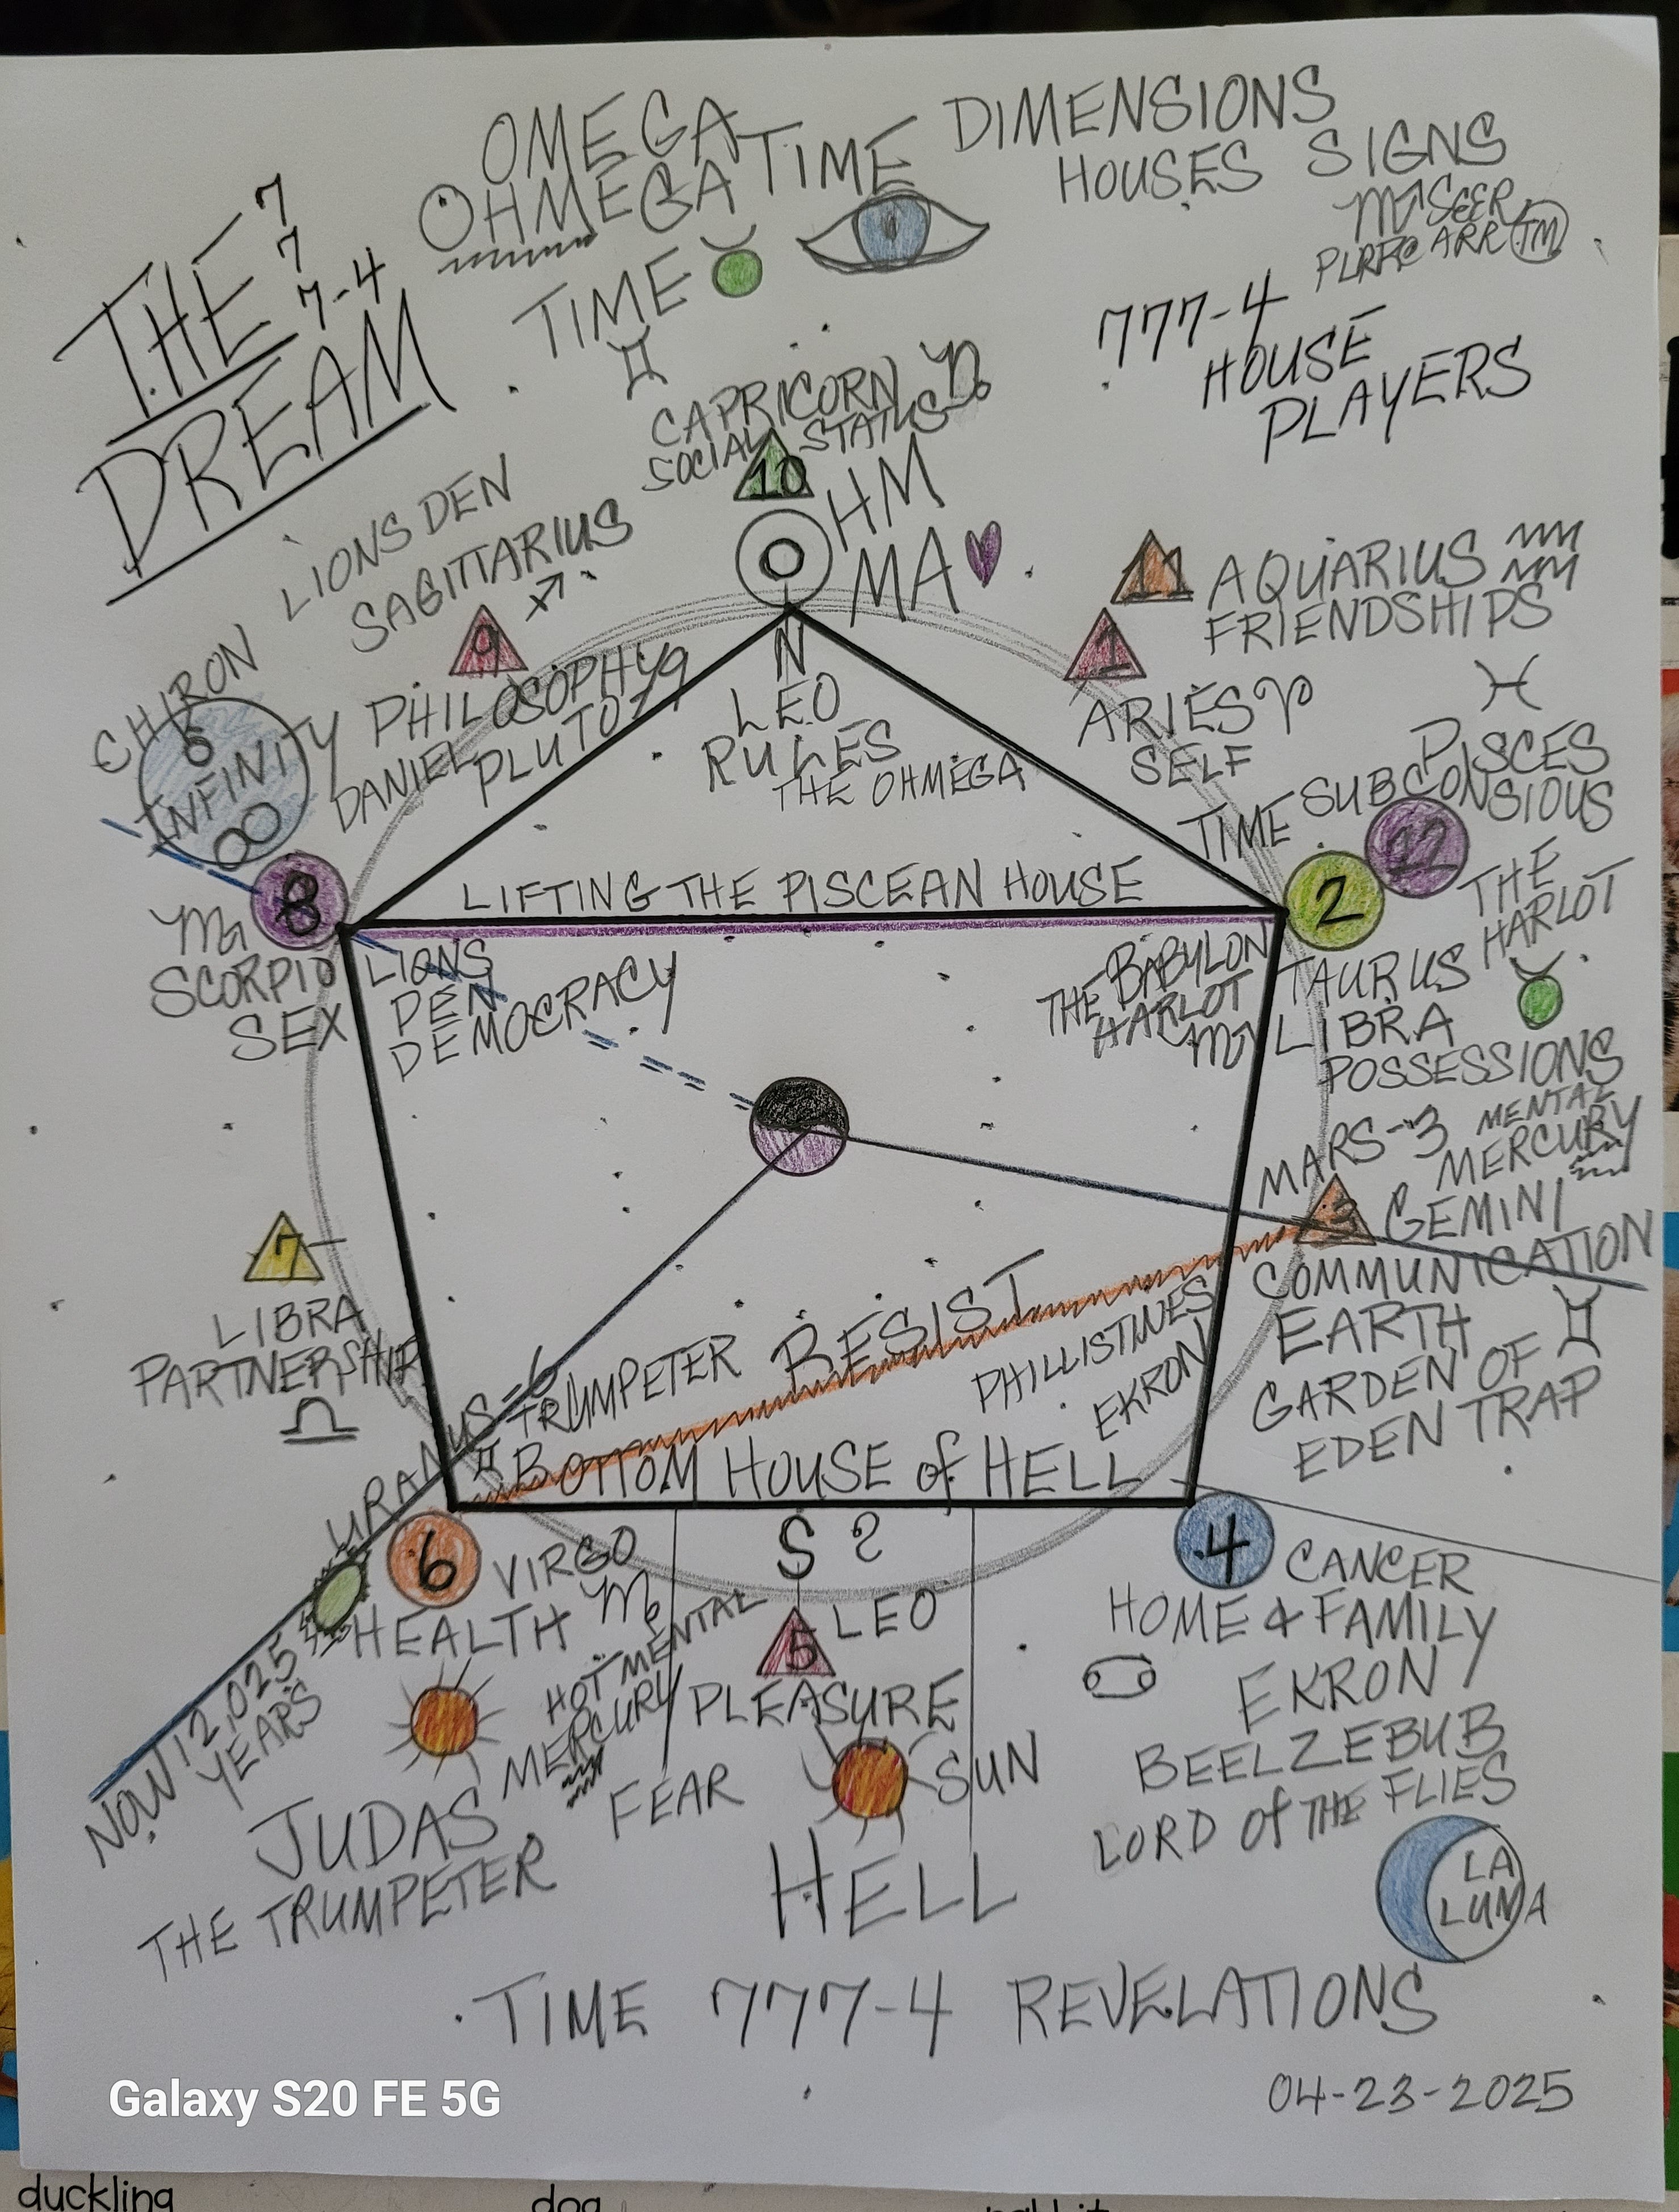 OMEGA
OHMEGA TIME
DIMENSIONS
HOUSES SIGNS
SEER
ARR TM
THE 7
7
7-4
DREAM
TIME
777-4
HOUSE
PLAYERS
CAPRICORN
SOCIAL STATUS
10
O HM
MA
LIONS DEN
SAGITTARIUS
9
11 AQUARIUS
FRIENDSHIPS
1
ARIES
SELF
CHIRON
6
INFINITY
PHILOSOPHY 9
DANIEL PLUTO 79
N
LEO
RULES
THE OHMEGA
PISCES
TIME SUBCONSIOUS
12
2
THE
HARLOT
8
SCORPIO
SEX
LIFTING THE PISCEAN HOUSE
LIONS
DEN
DEMOCRACY
THE BABYLON
HARLOT
TAURUS
LIBRA
POSSESSIONS
MARS-3 MENTAL
MERCURY
3 GEMINI
COMMUNICATION
EARTH
GARDEN OF
EDEN TRAP
7
LIBRA
PARTNERSHIP
URANUS-6
TRUMPETER RESIST
PHILLISTINES
EKRON
BOTTOM HOUSE of HELL
S ?
6 VIRGO
HEALTH
HOT MENTAL
MERCURY
5 LEO
PLEASURE
SUN
FEAR
HELL
4 CANCER
HOME & FAMILY
EKRON
BEELZEBUB
LORD of THE FLIES
LA
LUNA
NOW 12,025
YEARS
JUDAS
THE TRUMPETER
TIME 777-4 REVELATIONS
04-23-2025
Galaxy S20 FE 5G
duckling
dog